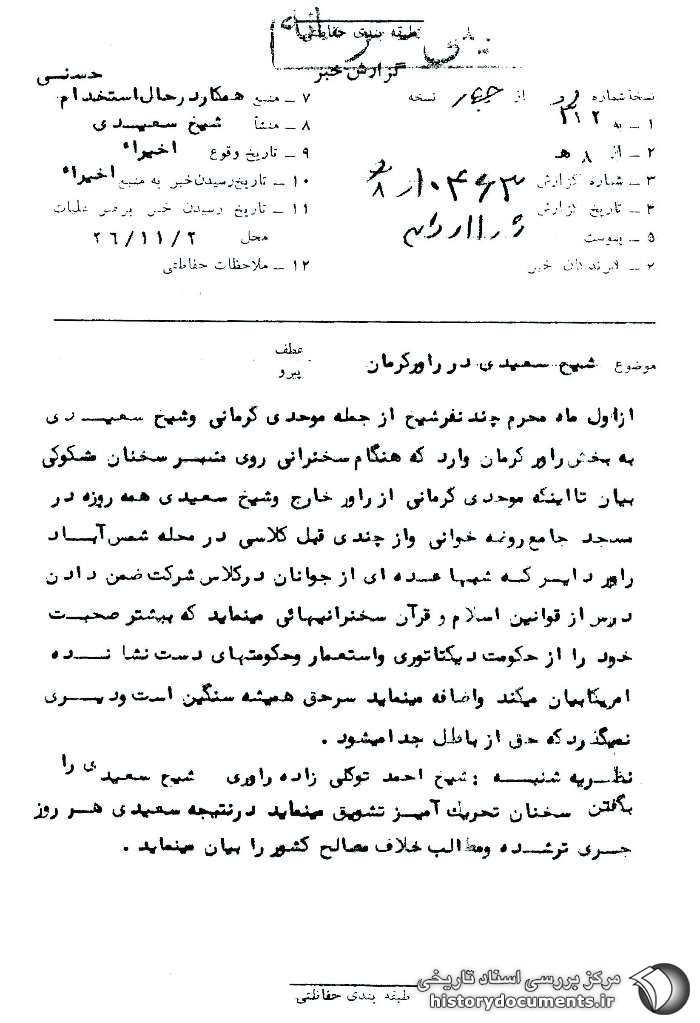 طبقه بندی حفاظتی
خیلی محرمانه
گزارش خبر
حسنی
نسخه شماره از چهار نسخه
۱ ــ به ۳۱۲
۲ ــ از ۸ هـ
۳ ــ شماره گزارش
۴ ــ تاریخ گزارش
۵ ــ پیوست
۶ ــ گیرندگان خبر
۷ ــ منبع همکار در حال استخدام
۸ ــ منشأ شیخ سعیدی
۹ ــ تاریخ وقوع اخیراً
۱۰ ــ تاریخ رسیدن خبر به منبع اخیراً
۱۱ ــ تاریخ رسیدن خبر برهبر عملیات
محل ۲۶/۱۱/۲
۱۲ ــ ملاحظات حفاظتی
موضوع شیخ سعیدی در راور کرمان
عطف
پیرو
ازاول ماه محرم چند نفر شیخ از جمله موحدی کرمانی وشیخ سعیدی
به بخش راور کرمان وارد که هنگام سخنرانی روی منبر سخنان مشکوکی
بیان تا اینکه موحدی کرمانی از راور خارج وشیخ سعیدی همه روزه در
مسجد جامع روضه خوانی واز چندی قبل کلاسی در محله شمس آباد
راور دایر که شبها عده ای از جوانان درکلاس شرکت ضمن دادن
درس از قوانین اسلام و قرآن سخنرانیهائی مینماید که بیشتر صحبت
خود را از حکومت دیکتاتوری واستعمار وحکومتهای دست نشا نده
امریکا بیان میکند واضافه مینماید سرحق همیشه سنگین است ودیری
نمیگذرد که حق از باطل جدا میشود .
نظریه شنبه : شیخ احمد توکلی زاده راوری شیخ سعیدی را
بگفتن سخنان تحریک آمیز تشویق مینماید درنتیجه سعیدی هر روز
جری ترشده ومطالب خلاف مصالح کشور را بیان مینماید .
طبقه بندی حفاظتی
مرکز بررسی اسناد تاریخی
historydocuments.ir